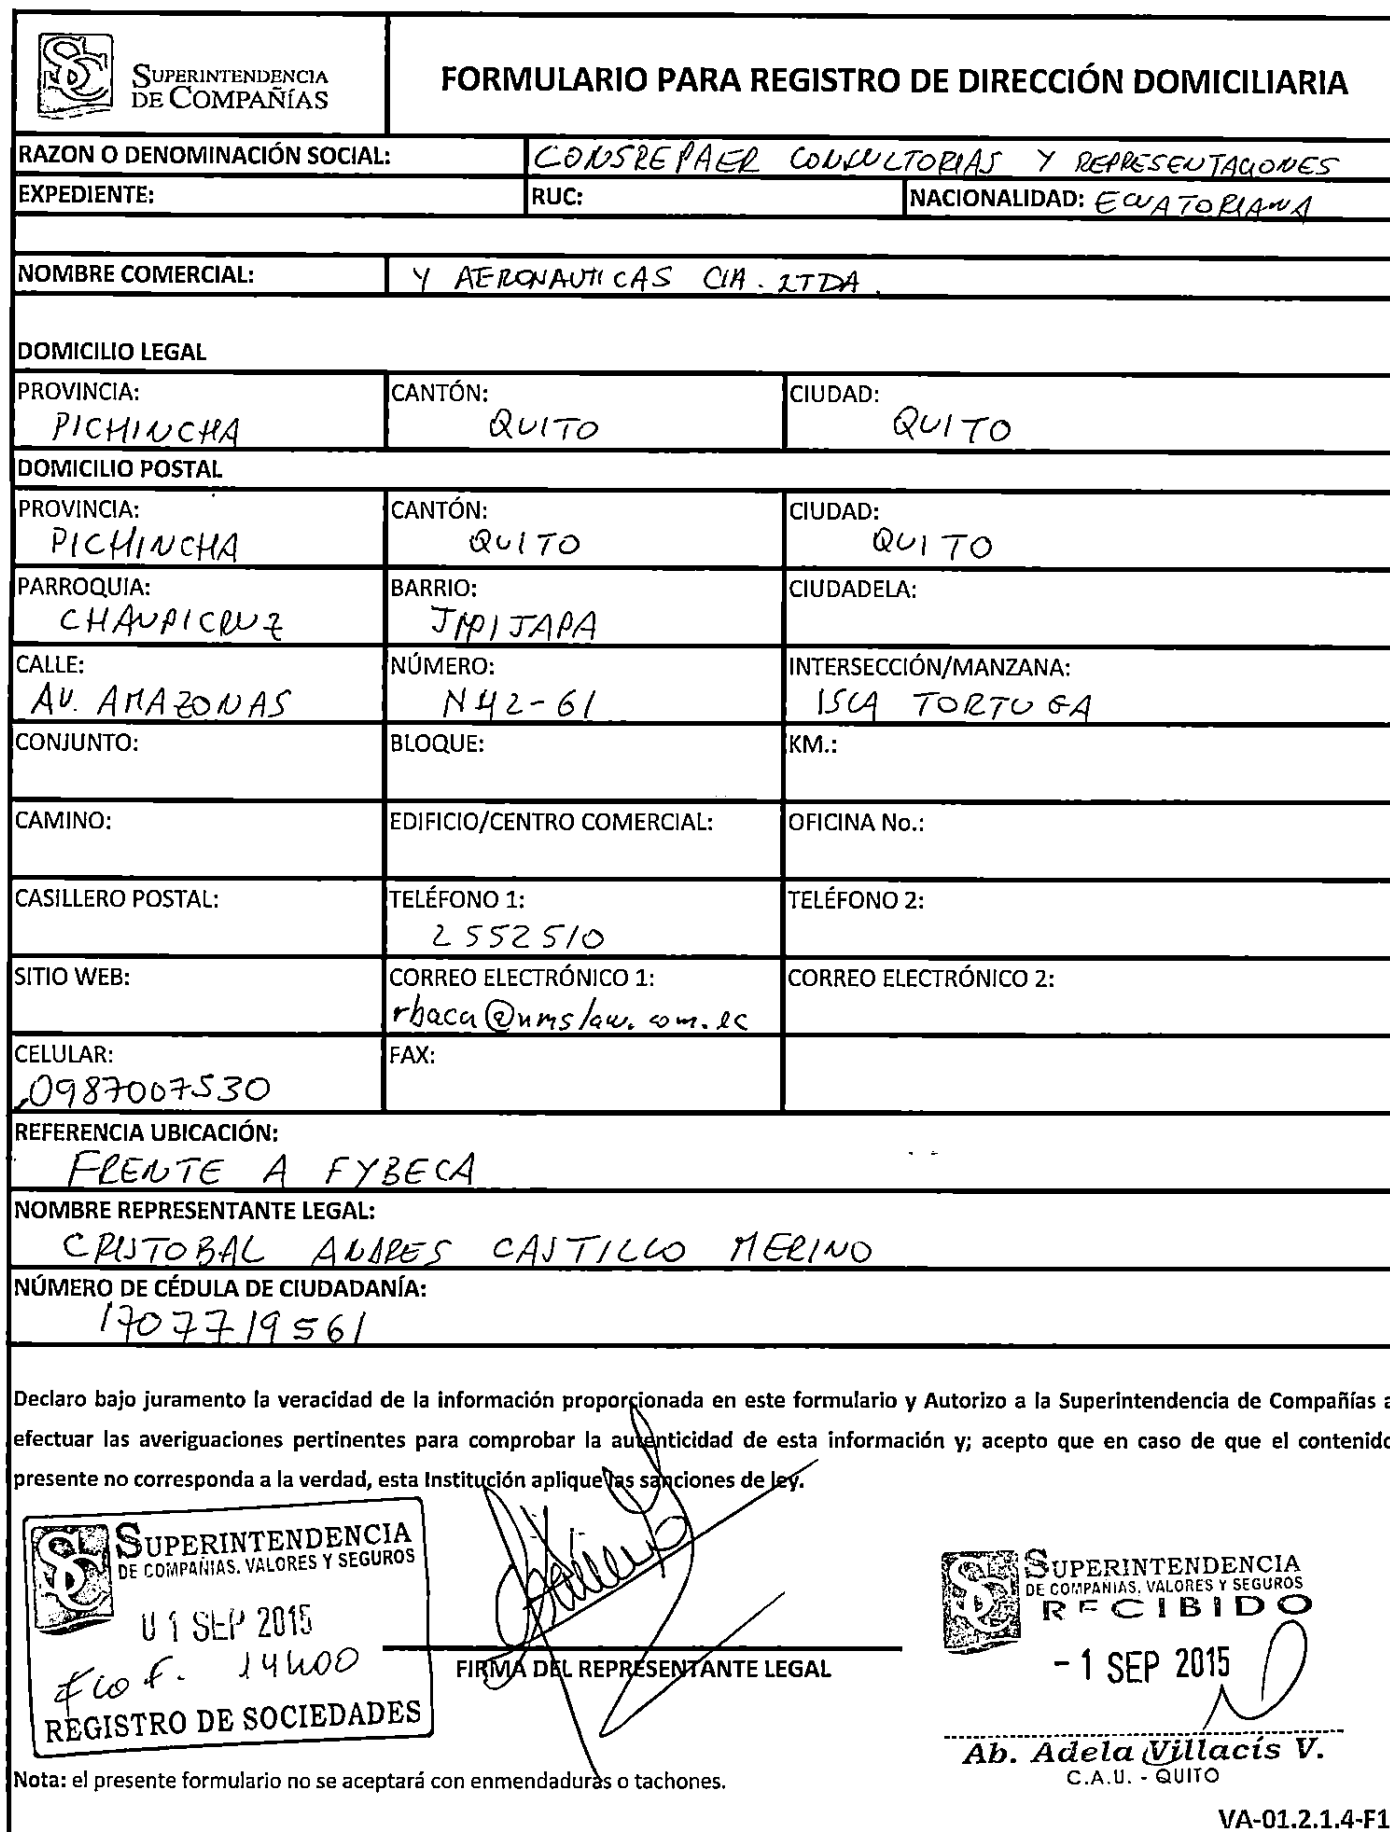 SUPERINTENDENCIA
DE COMPAÑÍAS
FORMULARIO PARA REGISTRO DE DIRECCIÓN DOMICILIARIA
RAZON O DENOMINACIÓN SOCIAL: CONSREPAER CONSULTORIAS Y REPRESENTACIONES
EXPEDIENTE: RUC: NACIONALIDAD: ECUATORIANA
NOMBRE COMERCIAL: Y AERONAUTICAS CIA. LTDA.
DOMICILIO LEGAL
PROVINCIA: CANTÓN: CIUDAD:
PICHINCHA QUITO QUITO
DOMICILIO POSTAL
PROVINCIA: CANTÓN: CIUDAD:
PICHINCHA QUITO QUITO
PARROQUIA: BARRIO: CIUDADELA:
CHAUPICRUZ JIPIJAPA
CALLE: NÚMERO: INTERSECCIÓN/MANZANA:
AV. AMAZONAS N42-61 ISLA TORTUGA
CONJUNTO: BLOQUE: KM.:
CAMINO: EDIFICIO/CENTRO COMERCIAL: OFICINA No.:
CASILLERO POSTAL: TELÉFONO 1: TELÉFONO 2:
2552510
SITIO WEB: CORREO ELECTRÓNICO 1: CORREO ELECTRÓNICO 2:
rbaca@nmslaw.com.ec
CELULAR: FAX:
0987007530
REFERENCIA UBICACIÓN:
FRENTE A FYBECA
NOMBRE REPRESENTANTE LEGAL:
CRISTOBAL ANDRES CASTILLO MERINO
NÚMERO DE CÉDULA DE CIUDADANÍA:
1707719561
Declaro bajo juramento la veracidad de la información proporcionada en este formulario y Autorizo a la Superintendencia de Compañías a
efectuar las averiguaciones pertinentes para comprobar la autenticidad de esta información y; acepto que en caso de que el contenido
presente no corresponda a la verdad, esta Institución aplique las sanciones de ley.
SUPERINTENDENCIA
DE COMPAÑIAS, VALORES Y SEGUROS
01 SEP 2015
14h00
REGISTRO DE SOCIEDADES
FIRMA DEL REPRESENTANTE LEGAL
SUPERINTENDENCIA
DE COMPAÑIAS, VALORES Y SEGUROS
RECIBIDO
- 1 SEP 2015
Ab. Adela Villacís V.
C.A.U. - QUITO
Nota: el presente formulario no se aceptará con enmendaduras o tachones.
VA-01.2.1.4-F1